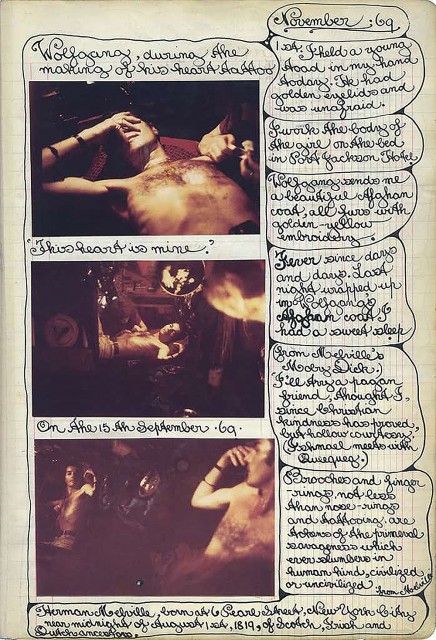 November : 69
Wolfgang, during the
making of his heart tattoo
"This heart is mine."
On the 15th September .69.
1st. I held a young
toad in my hand
today. It had
golden eyelids and
was unafraid.
I work the body of
the girl on the bed
in Port Jackson Hotel
Wolfgang sends me
a beautiful Afghan
coat, all furs with
golden-yellow
embroidery.
Fever since days
and days. Last
night wrapped up
in Wolfgang's
Afghan coat I
had a sweet sleep
(from Melville's
Moby Dick.)
"I'll try a pagan
friend, thought I,
since Christian
kindness has proved
but hollow courtesy."
(Ishmael meets with
Queequeg)
Brooches and finger
-rings, not less
than nose-rings
and tattooing, are
tokens of the primeval
savageness which
ever slumbers in
human kind, civilized
or uncivilized.
from Melville
Herman Melville, born at 6 Pearl Street, New York City
near midnight of August 1st, 1819, of Scotch, Irish and
Dutch ancestors.